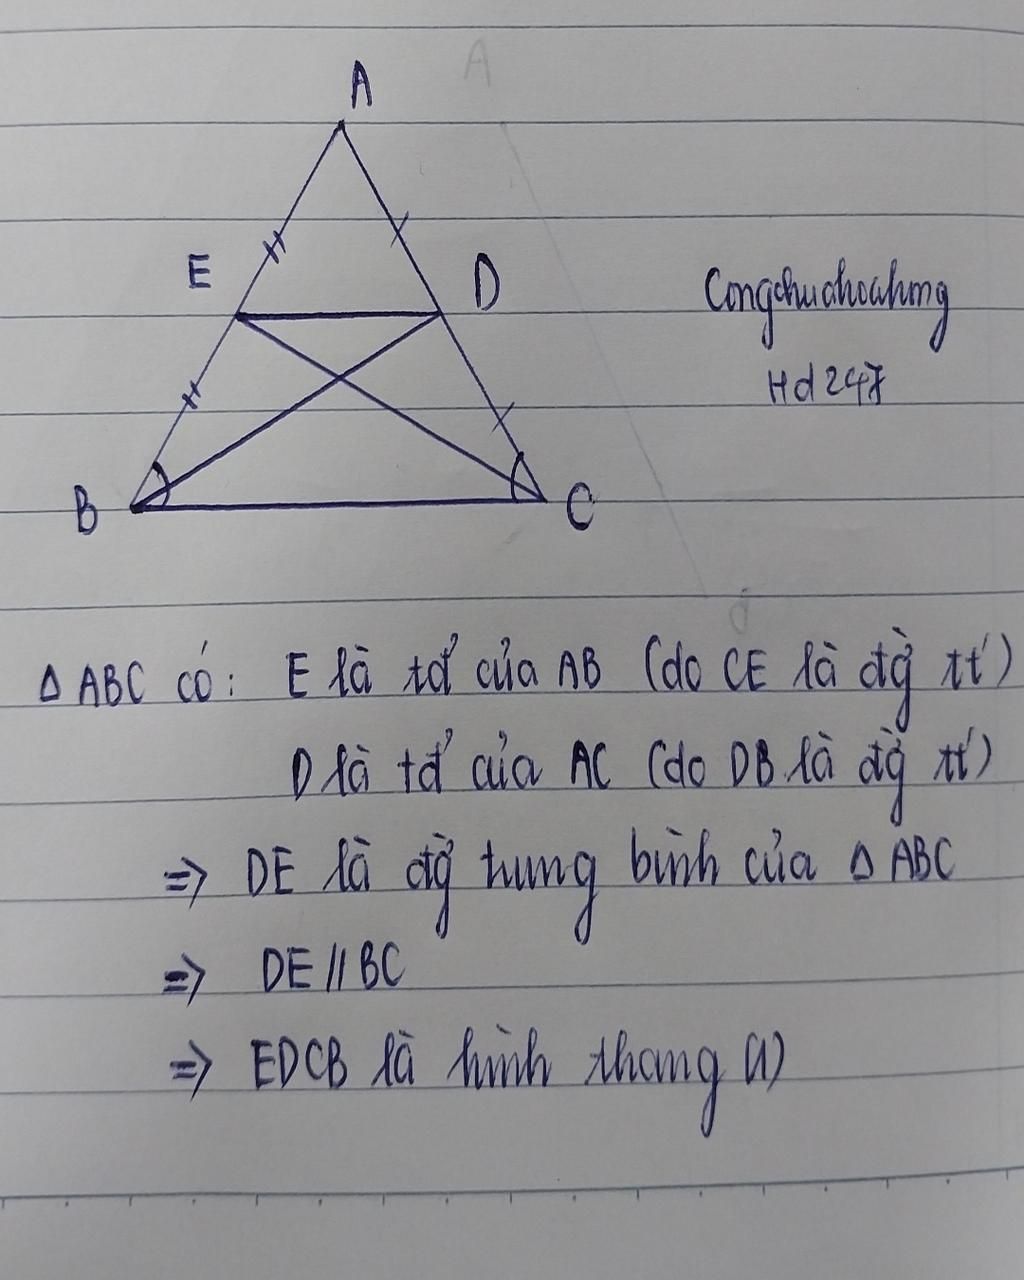 A
A
E
D
Congchuahoahong
Hd247
B
C
Δ ABC có: E là tđ' của AB (do CE là đg̀ tt')
D là tđ' của AC (do DB là đg̀ tt')
=> DE là đg̀ trung bình của Δ ABC
=> DE // BC
=> EDCB là hình thang (1)